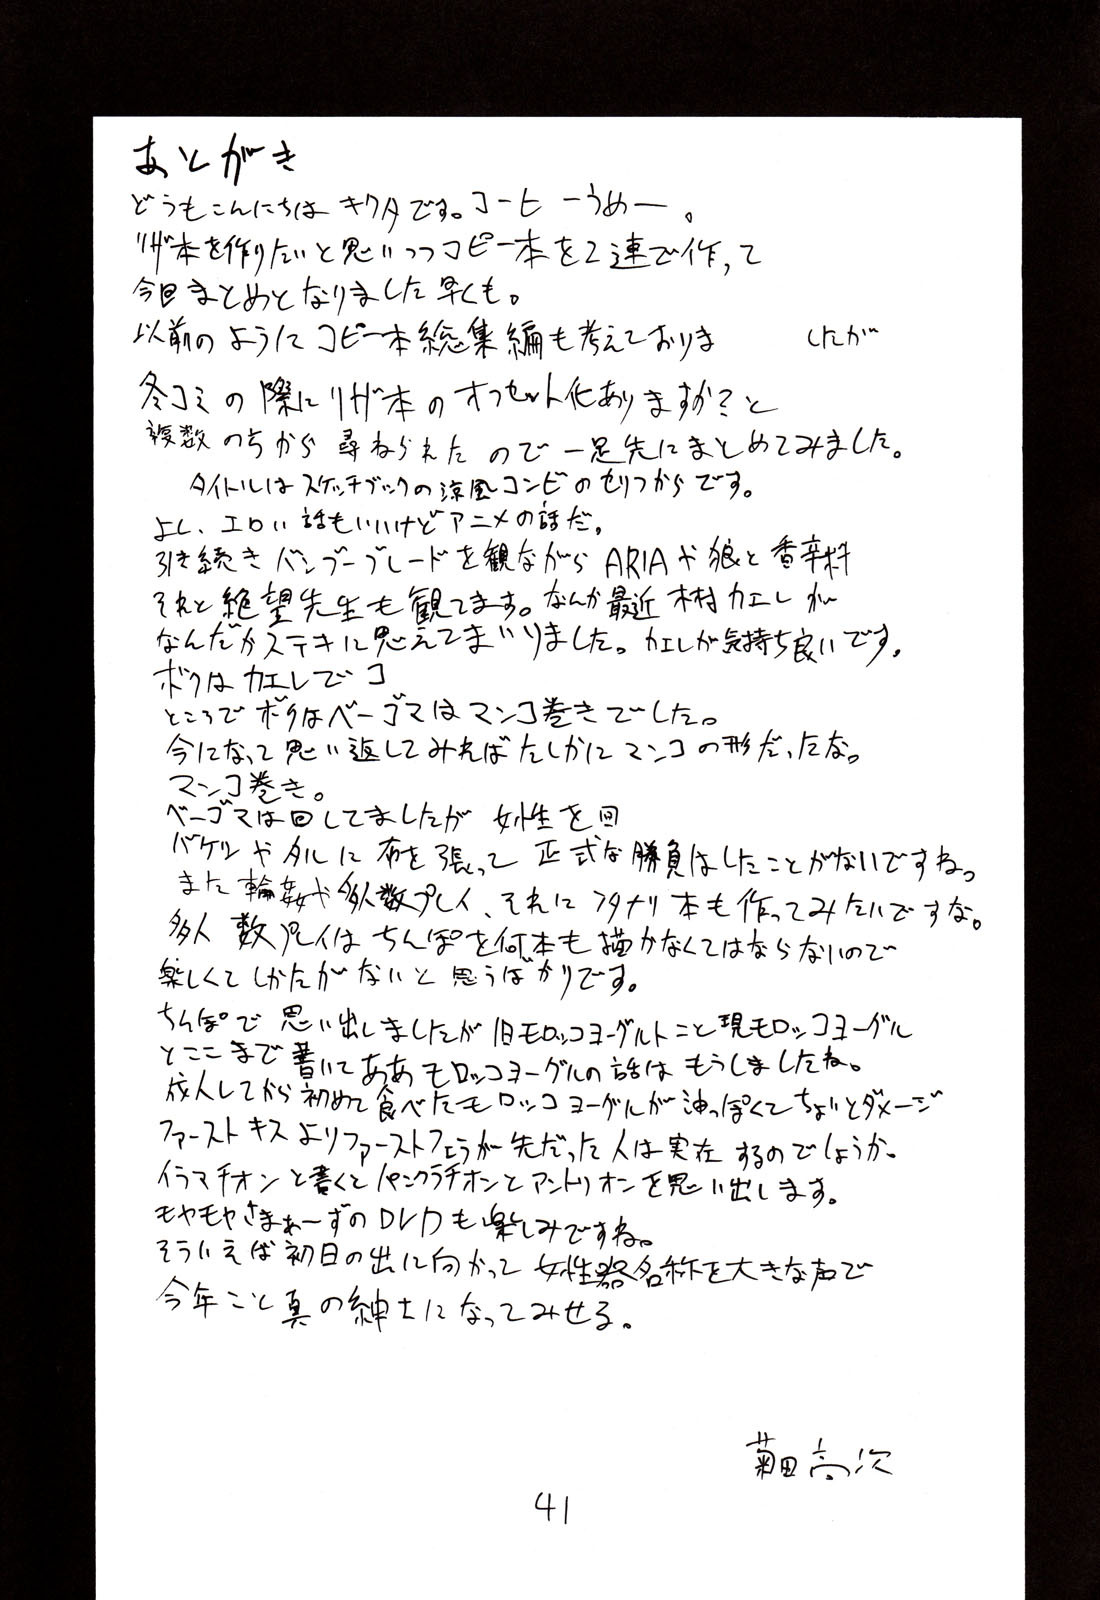 あとがき
どうもこんにちは キクタです。コーヒーうめー。
リザ本を作りたいと思いつつコピー本を2連で作って
今回まとめとなりました早くも。
以前のようにコピー本総集編も考えておりま したが
冬コミの際にリザ本のオフセット化ありますか?と
複数の方から尋ねられたので一足先にまとめてみました。
タイトルはスケッチブックの涼風コンビのセリフからです。
よし、エロい話もいいけどアニメの話だ。
引き続きバンブーブレードを観ながらARIAや狼と香辛料
それと絶望先生も観てます。なんか最近木村カエレが
なんだかステキに思えてまいりました。カエレが気持ち良いです。
ボクはカエレでコ
ところでボクはベーゴマはマンコ巻きでした。
今になって思い返してみればたしかにマンコの形だったな。
マンコ巻き。
ベーゴマは回してましたが 女性を回
バケツやタルに布を張って正式な勝負はしたことがないですね。
また輪姦や多人数プレイ、それにフタナリ本も作ってみたいですな。
多人数プレイはちんぽを何本も描かなくてはならないので
楽しくてしかたがないと思うばかりです。
ちんぽで思い出しましたが旧モロッコヨーグルトこと現モロッコヨーグル
とここまで書いてああモロッコヨーグルの話はもうしましたね。
成人してから初めて食べたモロッコヨーグルが油っぽくてちょいとダメージ
ファーストキスよりファーストフェラが先だった人は実在するのでしょうか。
イラマチオンと書くとパンクラチオンとアントリオンを思い出します。
モヤモヤさまぁ〜ずのDVDも楽しみですね。
そういえば初日の出に向かって女性器名称を大きな声で
今年こと真の紳士になってみせる。
菊田高次
41